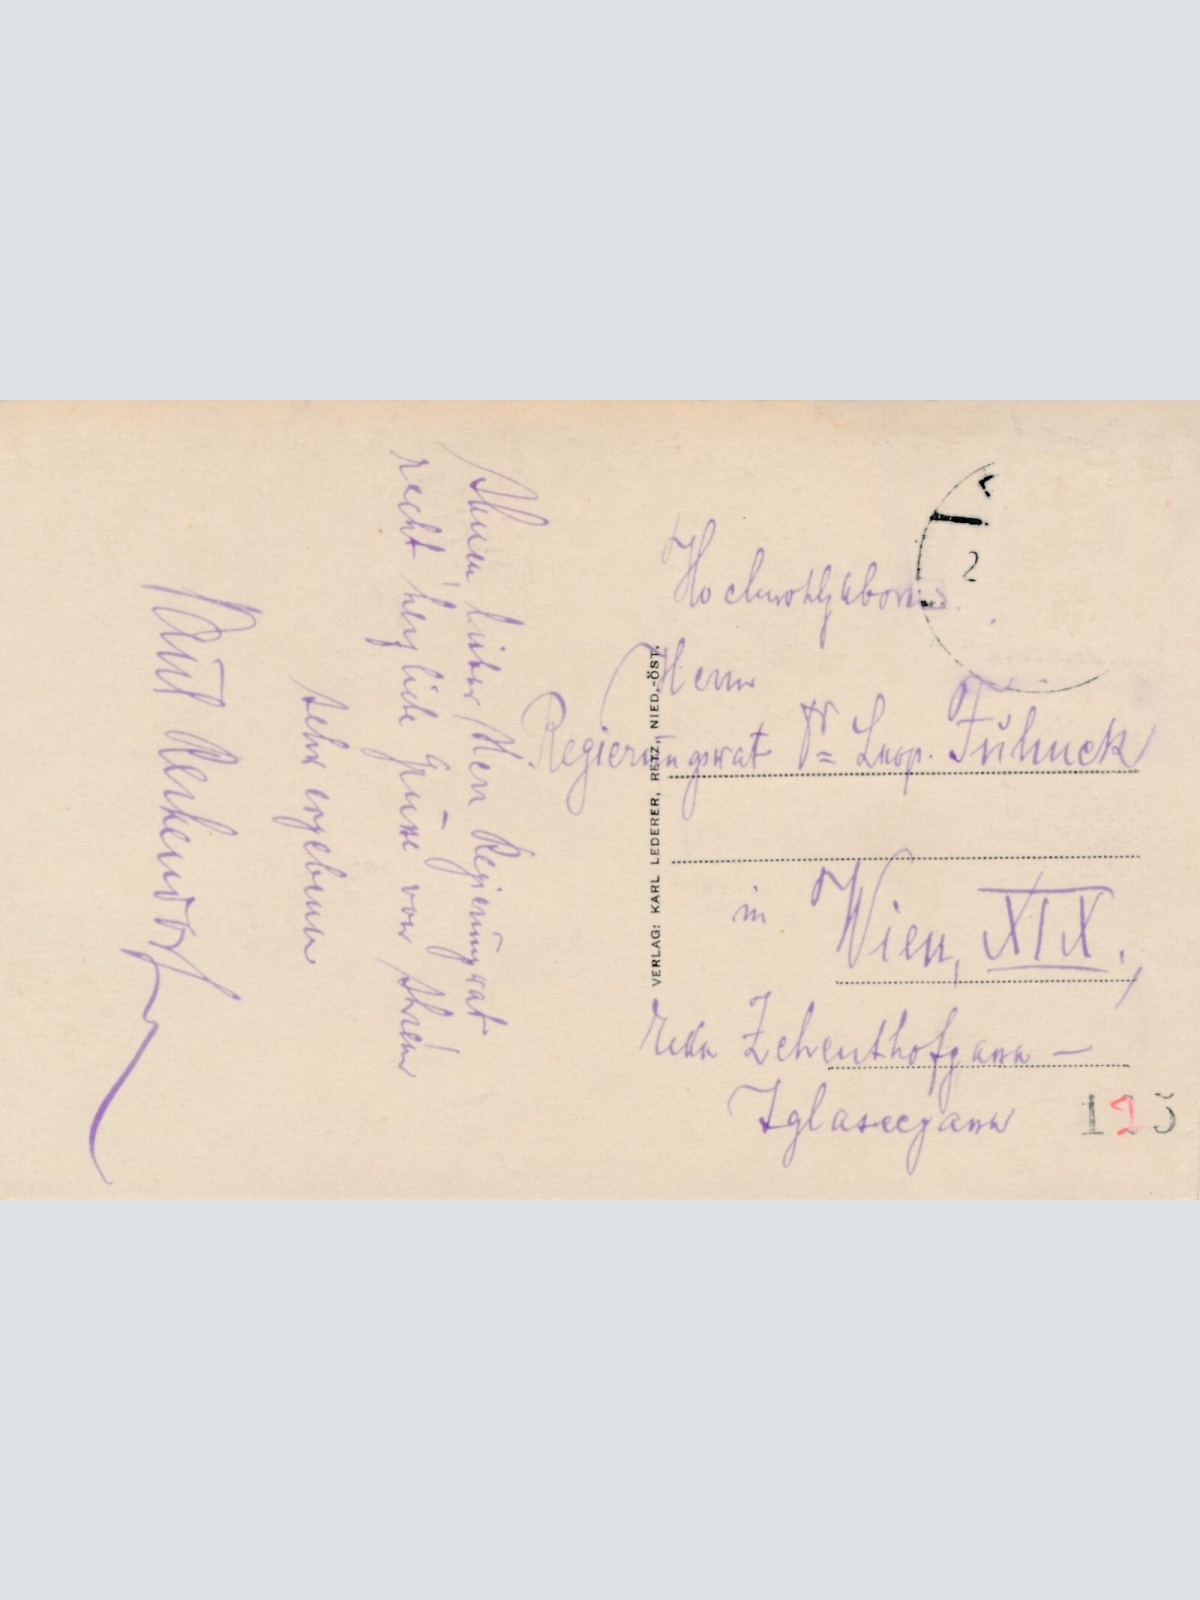 Ihnen lieber Herr Regierungsrat
recht herzliche Grüsse von Ihrem
sehr ergebenen
VERLAG: KARL LEDERER, RETZ, NIED.-ÖST.
2
Hochwohlgeboren
Herrn
Regierungsrat Dr Leop.
in Wien, XIX.,
Ecke Zehenthofgasse –
Iglaseegasse
125